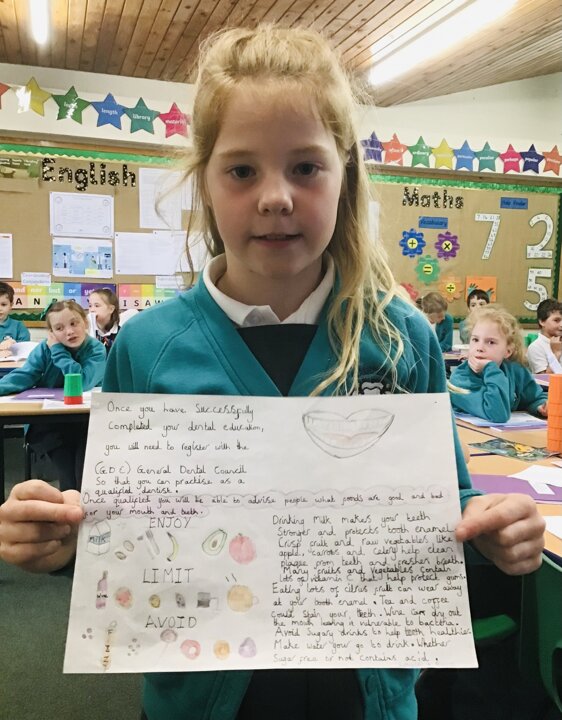 length
library
material
English
Maths
Vocabulary
Nand nor but or yet so
ISAWA
7
2
5
Once you have Successfully
Completed your dental education,
you will need to register with the
(G D C) General Dental Council
So that you can practise as a
qualified dentist.
Once qualified you will be able to advise people what foods are good and bad
for your mouth and teeth.
ENJOY
LIMIT
AVOID
Drinking Milk makes your teeth
Stronger and protects tooth enamel.
Crisp fruit and raw vegetables like
apple, carrots and celery help clean
plaque from teeth and freshen breath.
Many fruits and vegetables contain
lots of vitamin C that help protect gums.
Eating lots of citrus fruit can wear away
at your tooth enamel. Tea and coffee
could stain your teeth. Wine can dry out
the mouth leaving it vulnerable to bacteria.
Avoid Sugary drinks to help teeth healthier.
Make water your go to drink. Whether
Sugar free or not contains acid.